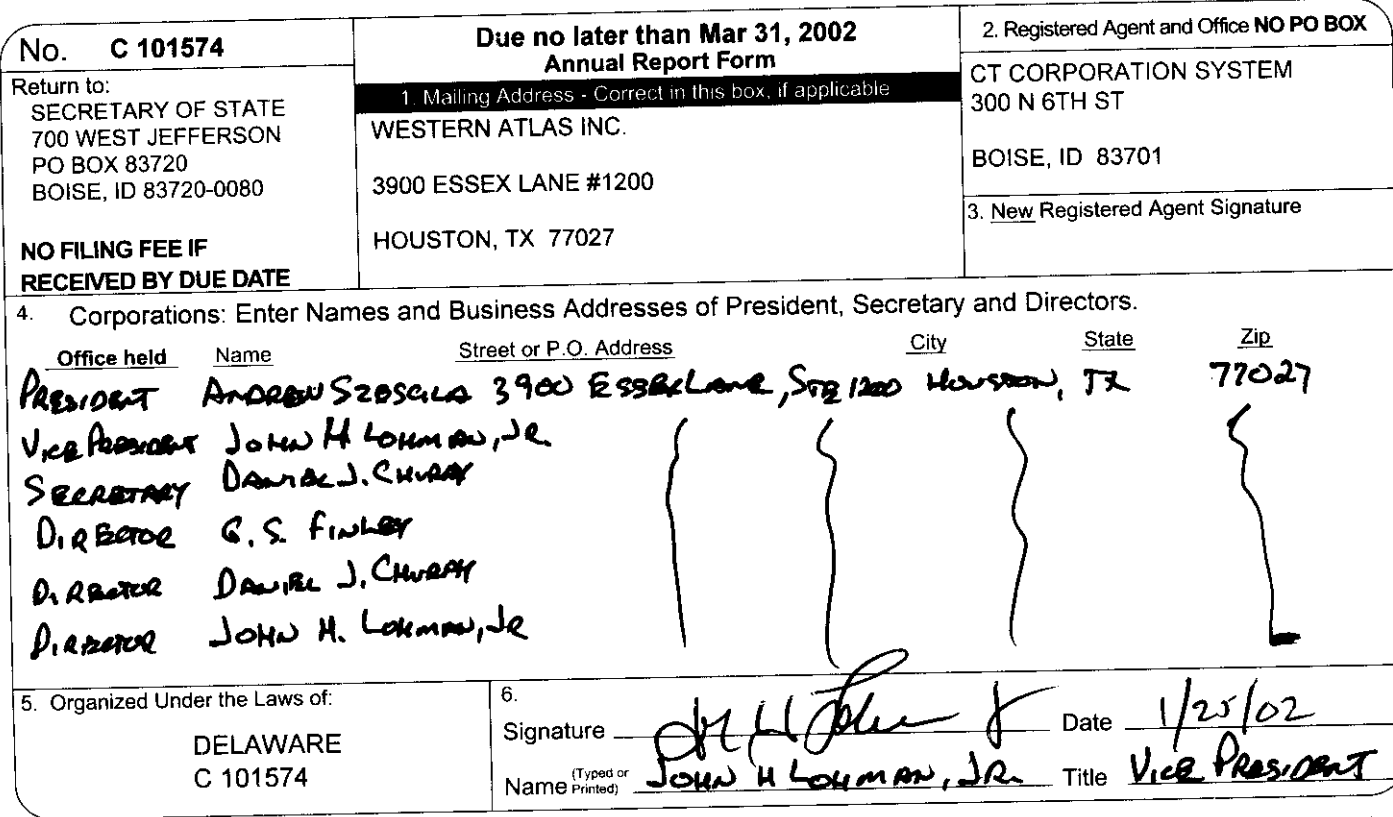 No. C 101574
Return to:
SECRETARY OF STATE
700 WEST JEFFERSON
PO BOX 83720
BOISE, ID 83720-0080
NO FILING FEE IF
RECEIVED BY DUE DATE
Due no later than Mar 31, 2002
Annual Report Form
1. Mailing Address - Correct in this box, if applicable
WESTERN ATLAS INC.
3900 ESSEX LANE #1200
HOUSTON, TX 77027
2. Registered Agent and Office NO PO BOX
CT CORPORATION SYSTEM
300 N 6TH ST
BOISE, ID 83701
3. New Registered Agent Signature
4. Corporations: Enter Names and Business Addresses of President, Secretary and Directors.
Office held Name Street or P.O. Address City State Zip
PRESIDENT ANDREW 3900 ESSEX LANE, STE 1200 HOUSTON, TX 77027
VICE PRESIDENT JOHN H LOHMAN, JR.
SECRETARY DANIEL J. CHURAY
DIRECTOR G. S. FINLEY
DIRECTOR DANIEL J. CHURAY
DIRECTOR JOHN H. LOHMAN, JR
5. Organized Under the Laws of:
DELAWARE
C 101574
6.
Signature Date 1/25/02
Name (Typed or Printed) JOHN H LOHMAN, JR. Title VICE PRESIDENT